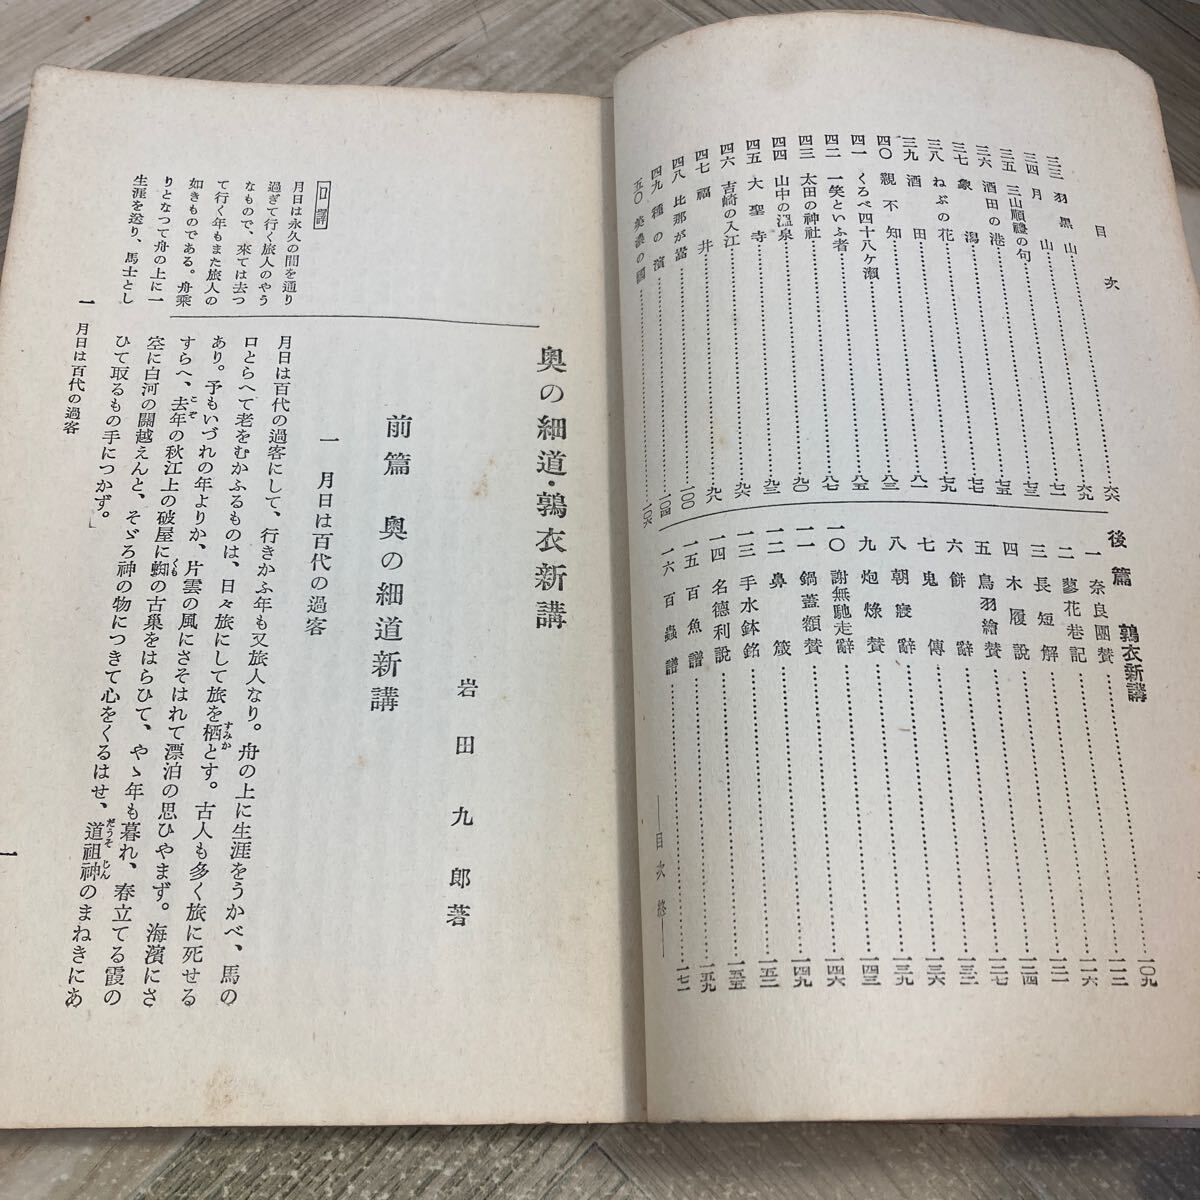 目次
三三 羽黒山 六六
三四 月山 六九
三五 三山順禮の句 七一
三六 酒田の港 七三
三七 象潟 七五
三八 ねぶの花 七九
三九 酒田 八一
四〇 親不知 八三
四一 くろべ四十八ケ瀬 八五
四二 一笑といふ者 八七
四三 太田の神社 九〇
四四 山中の溫泉 九三
四五 大聖寺
四六 吉崎の入江 九六
四七 福井 九八
四八 比那が嵩 一〇〇
四九 種の濱 一〇四
五〇 美濃の國 一〇六
後篇 鶉衣新講 一〇九
一 奈良團賛 一一三
二 蓼花巷記 一一六
三 長短解 一二一
四 木履說 一二四
五 鳥羽繪賛 一二七
六 餅辭 一三三
七 鬼傳 一三六
八 朝寢辭 一三九
九 炮烙賛 一四三
一〇 謝無馳走辭 一四六
一一 鍋蓋額賛 一四九
一二 鼻箴 一五二
一三 手水鉢銘 一五五
一四 名德利說
一五 百魚譜 一五九
一六 百蟲譜 一七一
――目次終――
奥の細道・鶉衣新講
岩田九郎著
前篇 奥の細道新講
一 月日は百代の過客
月日は百代の過客にして、行きかふ年も又旅人なり。舟の上に生涯をうかべ、馬の
口とらへて老をむかふるものは、日々旅にして旅を栖とす。古人も多く旅に死せる
すみか
あり。予もいづれの年よりか、片雲の風にさそはれて漂泊の思ひやまず。海濱にさ
すらへ、去年の秋江上の破屋に蜘の古巢をはらひて、やゝ年も暮れ、春立てる霞の
こぞ
くも
空に白河の關越えんと、そゞろ神の物につきて心をくるはせ、道祖神のまねきにあ
だうそじん
ひて取るもの手につかず。」
口譯
月日は永久の間を通り
過ぎて行く旅人のやう
なもので、來ては去つ
て行く年もまた旅人の
如きものである。舟乘
りとなつて舟の上に一
生涯を送り、馬士とし
一 月日は百代の過客
一